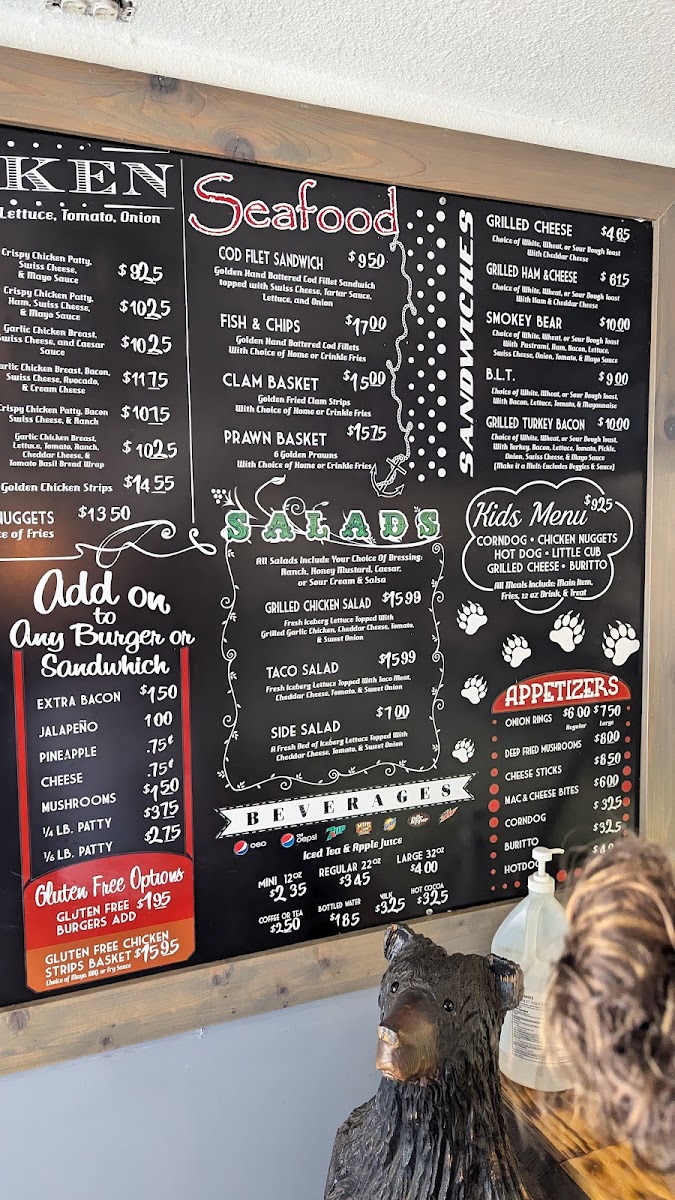 KEN
Lettuce, Tomato, Onion
Crispy Chicken Patty,
Swiss Cheese,
& Mayo Sauce
$925
Crispy Chicken Patty,
Ham, Swiss Cheese,
& Mayo Sauce
$1025
Garlic Chicken Breast,
Swiss Cheese, and Caesar
Sauce
$1025
Garlic Chicken Breast, Bacon,
Swiss Cheese, Avocado,
& Cream Cheese
$1175
Crispy Chicken Patty, Bacon
Swiss Cheese, & Ranch
$1075
Garlic Chicken Breast,
Lettuce, Tomato, Ranch,
Cheddar Cheese, &
Tomato Basil Bread Wrap
$1025
Golden Chicken Strips $1455
NUGGETS $1350
ce of Fries
Add on
to
Any Burger or
Sandwhich
EXTRA BACON $150
JALAPEÑO 100
PINEAPPLE .75¢
CHEESE .75¢
MUSHROOMS $150
1/4 LB. PATTY $375
1/6 LB. PATTY $275
Gluten Free Options
GLUTEN FREE $195
BURGERS ADD
GLUTEN FREE CHICKEN
STRIPS BASKET $1595
Choice of Mayo, BBQ, or Fry Sauce
Seafood
COD FILET SANDWICH $950
Golden Hand Battered Cod Filet Sandwich
topped with Swiss Cheese, Tartar Sauce,
Lettuce, and Onion
FISH & CHIPS $1700
Golden Hand Battered Cod Fillets
With Choice of Home or Crinkle Fries
CLAM BASKET $1500
Golden Fried Clam Strips
With Choice of Home or Crinkle Fries
PRAWN BASKET $1575
6 Golden Prawns
With Choice of Home or Crinkle Fries
SALADS
All Salads Include Your Choice Of Dressing:
Ranch, Honey Mustard, Caesar,
or Sour Cream & Salsa
GRILLED CHICKEN SALAD $1599
Fresh Iceberg Lettuce Topped With
Grilled Garlic Chicken, Cheddar Cheese, Tomato,
& Sweet Onion
TACO SALAD $1599
Fresh Iceberg Lettuce Topped With Taco Meat,
Cheddar Cheese, Tomato, & Sweet Onion
SIDE SALAD $700
A Fresh Bed of Iceberg Lettuce Topped With
Cheddar Cheese, Tomato, & Sweet Onion
BEVERAGES
pepsi
7UP
Iced Tea & Apple Juice
MINI 12OZ REGULAR 22OZ LARGE 32OZ
$235 $345 $400
COFFEE OR TEA BOTTLED WATER MILK HOT COCOA
$250 $185 $325 $325
SANDWICHES
GRILLED CHEESE $465
Choice of White, Wheat, or Sour Dough Toast
With Cheddar Cheese
GRILLED HAM & CHEESE $615
Choice of White, Wheat, or Sour Dough Toast
With Ham & Cheddar Cheese
SMOKEY BEAR $1000
Choice of White, Wheat, or Sour Dough Toast,
With Pastrami, Ham, Bacon, Lettuce,
Swiss Cheese, Onion, Tomato, & Mayo Sauce
B.L.T. $900
Choice of White, Wheat, or Sour Dough Toast,
With Bacon, Lettuce, Tomato, & Mayonnaise
GRILLED TURKEY BACON $1000
Choice of White, Wheat, or Sour Dough Toast,
With Turkey, Bacon, Lettuce, Tomato, Pickle,
Onion, Swiss Cheese, & Mayo Sauce
(Make it a Melt: Excludes Veggies & Sauce)
Kids Menu $925
CORNDOG • CHICKEN NUGGETS
HOT DOG • LITTLE CUB
GRILLED CHEESE • BURITTO
All Meals Include: Main Item,
Fries, 12 oz Drink, & Treat
APPETIZERS
ONION RINGS $600 $750
Regular Large
DEEP FRIED MUSHROOMS $800
CHEESE STICKS $850
MAC & CHEESE BITES $600
CORNDOG $325
BURITTO $325
HOTDO